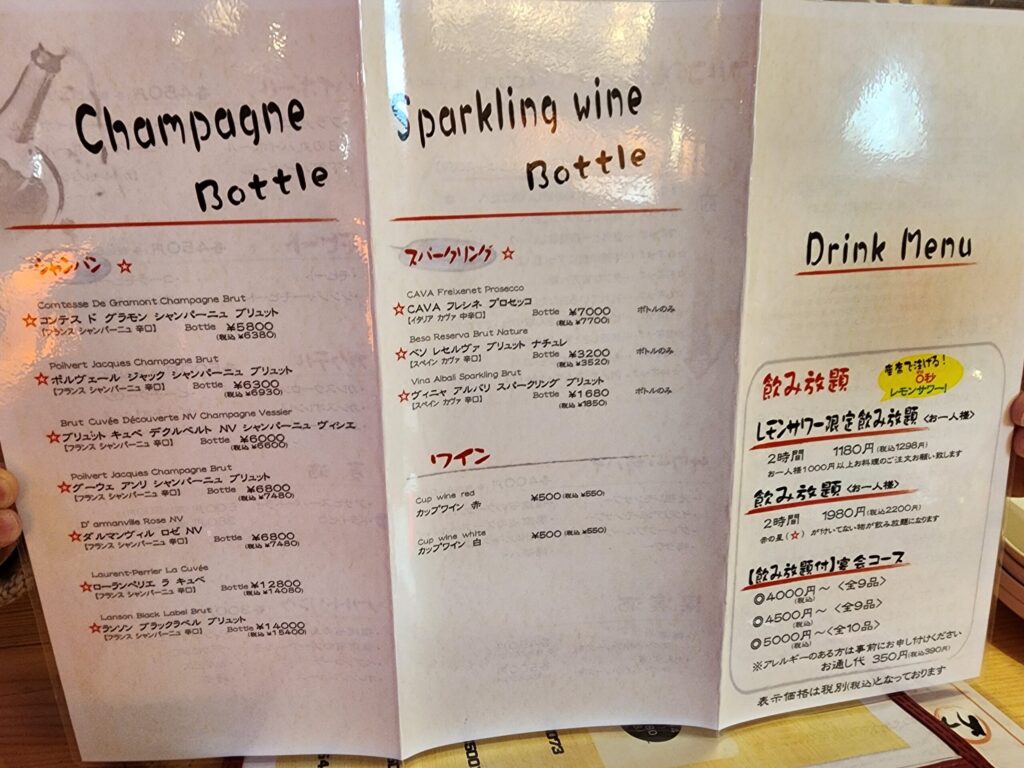 Champagne
Bottle
シャンパン ☆
Comtesse De Gramont Champagne Brut
☆コンテス ド グラモン シャンパーニュ ブリュット
【フランス シャンパーニュ 辛口】 Bottle ¥5800
(税込 ¥6380)
Polivert Jacques Champagne Brut
☆ポルヴェール ジャック シャンパーニュ ブリュット
【フランス シャンパーニュ 辛口】 Bottle ¥6300
(税込 ¥6930)
Brut Cuvée Découverte NV Champagne Vessier
☆ブリュット キュベ デクルベルト NV シャンパーニュ ヴィシエ
【フランス シャンパーニュ 辛口】 Bottle ¥6000
(税込 ¥6600)
Polivert Jacques Champagne Brut
☆グーウェ アンリ シャンパーニュ ブリュット
【フランス シャンパーニュ 辛口】 Bottle ¥6800
(税込 ¥7480)
D' armanville Rose NV
☆ダルマンヴィル ロゼ NV
【フランス シャンパーニュ 辛口】 Bottle ¥6800
(税込 ¥7480)
Laurent-Perrier La Cuvée
☆ローランペリエ ラ キュベ
【フランス シャンパーニュ 辛口】 Bottle ¥12800
(税込 ¥14080)
Lanson Black Label Brut
☆ランソン ブラックラベル ブリュット
【フランス シャンパーニュ 辛口】 Bottle ¥14000
(税込 ¥15400)
Sparkling wine
Bottle
スパークリング ☆
CAVA Freixenet Prosecco
☆CAVA フレシネ プロセッコ
【イタリア カヴァ 中辛口】 Bottle ¥7000 ボトルのみ
(税込 ¥7700)
Beso Reserva Brut Nature
☆ベン レセルヴァ ブリュット ナチュレ
【スペイン カヴァ 辛口】 Bottle ¥3200 ボトルのみ
(税込 ¥3520)
Vina Albali Sparkling Brut
☆ヴィニャ アルバリ スパークリング ブリュット
【スペイン カヴァ 辛口】 Bottle ¥1680 ボトルのみ
(税込 ¥1850)
ワイン
Cup wine red
カップワイン 赤 ¥500(税込 ¥550)
Cup wine white
カップワイン 白 ¥500(税込 ¥550)
Drink Menu
飲み放題
0秒
レモンサワー!
レモンサワー限定飲み放題〈お一人様〉
2時間 1180円(税込1298円)
お一人様1000円以上お料理のご注文お願い致します
飲み放題〈お一人様〉
2時間 1980円(税込2200円)
赤の星(☆)が付いてない物が飲み放題になります
【飲み放題付】宴会コース
◎4000円~〈全9品〉
(税込)
◎4500円~〈全9品〉
(税込)
◎5000円~〈全10品〉
(税込)
※アレルギーのある方は事前にお申し付けください
お通し代 350円(税込390円)
表示価格は税別(税込)となっております